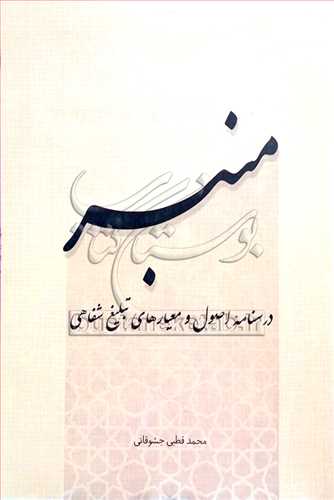 منبر
بوستان کتاب
درسنامه اصول و معیارهای تبلیغ شفاهی
محمد قطبی جشوقانی